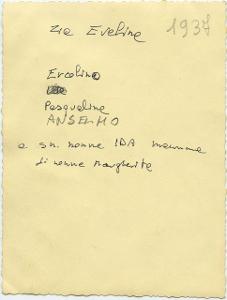 zia Eveline 1937
Ercolino
Pasqualina
ANSELMO
a sn. nonna IDA mamma
di nonna Margherita